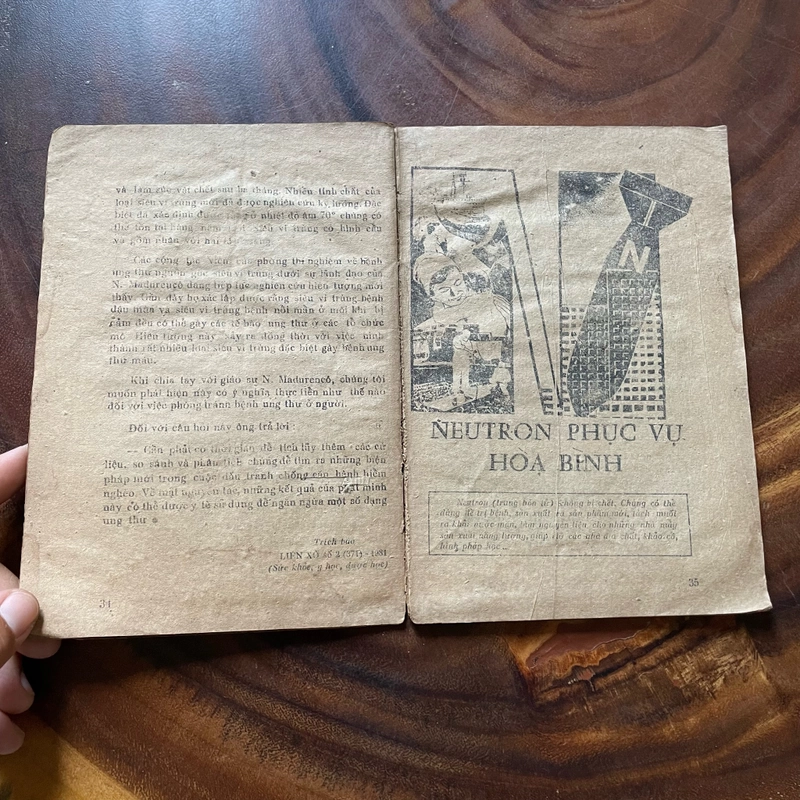 và làm súc vật chết sau ba tháng. Nhiều tính chất của
loại siêu vi trùng mới đã được nghiên cứu kỹ lưỡng. Đặc
biệt đã xác định được nhiệt độ âm 70° chúng có
thể tồn tại hàng năm siêu vi trùng có hình cầu
và gồm nhân với hai
Các cộng tác viên của phòng thí nghiệm về bệnh
ung thư nguồn gốc siêu vi trùng dưới sự lãnh đạo của
N. Madurencô đang tiếp tục nghiên cứu hiện tượng mới
thấy. Gần đây họ xác lập được rằng siêu vi trùng bệnh
đậu mùa và siêu vi trùng bệnh nổi mần ở môi khi bị
cảm đều có thể gây các tế bào ung thư ở các tổ chức
mô. Hiện tượng này xảy ra đồng thời với việc hình
thành rất nhiều loại siêu vi trùng đặc biệt gây bệnh ung
thư máu.
Khi chia tay với giáo sư N. Madurencô, chúng tôi
muốn phát hiện này có ý nghĩa thực tiễn như thế nào
đối với việc phòng tránh bệnh ung thư ở người.
Đối với câu hỏi này ông trả lời :
— Cần phải có thời gian để tích lũy thêm các cứ
liệu, so sánh và phân tích chúng để tìm ra những biện
pháp mới trong cuộc đấu tranh chống căn bệnh hiểm
nghèo. Về mặt nguyên tắc, những kết quả của phát minh
này có thể được y tế sử dụng để ngăn ngừa một số dạng
ung thư
Trích báo
LIÊN XÔ số 2 (371) - 1981
(Sức khỏe, y học, dược học)
34
N
NEUTRON PHỤC VỤ
HÒA BÌNH
Neutron (trung hòa tử) không bị chết. Chúng có thể
dùng để trị bệnh, sản xuất ra sản phẩm mới, tách muối
ra khỏi nước mặn, làm nguyên liệu cho những nhà máy
sản xuất năng lượng, giúp đỡ các nhà địa chất, khảo cổ,
hình pháp học...
35